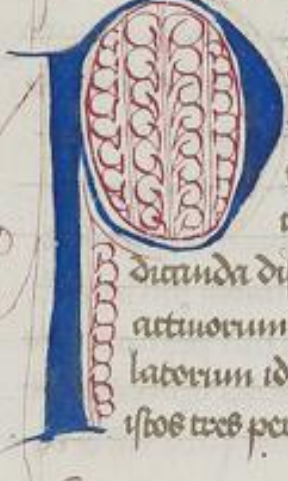 P
dicanda di
actiuorum
latorum id
istos tres per